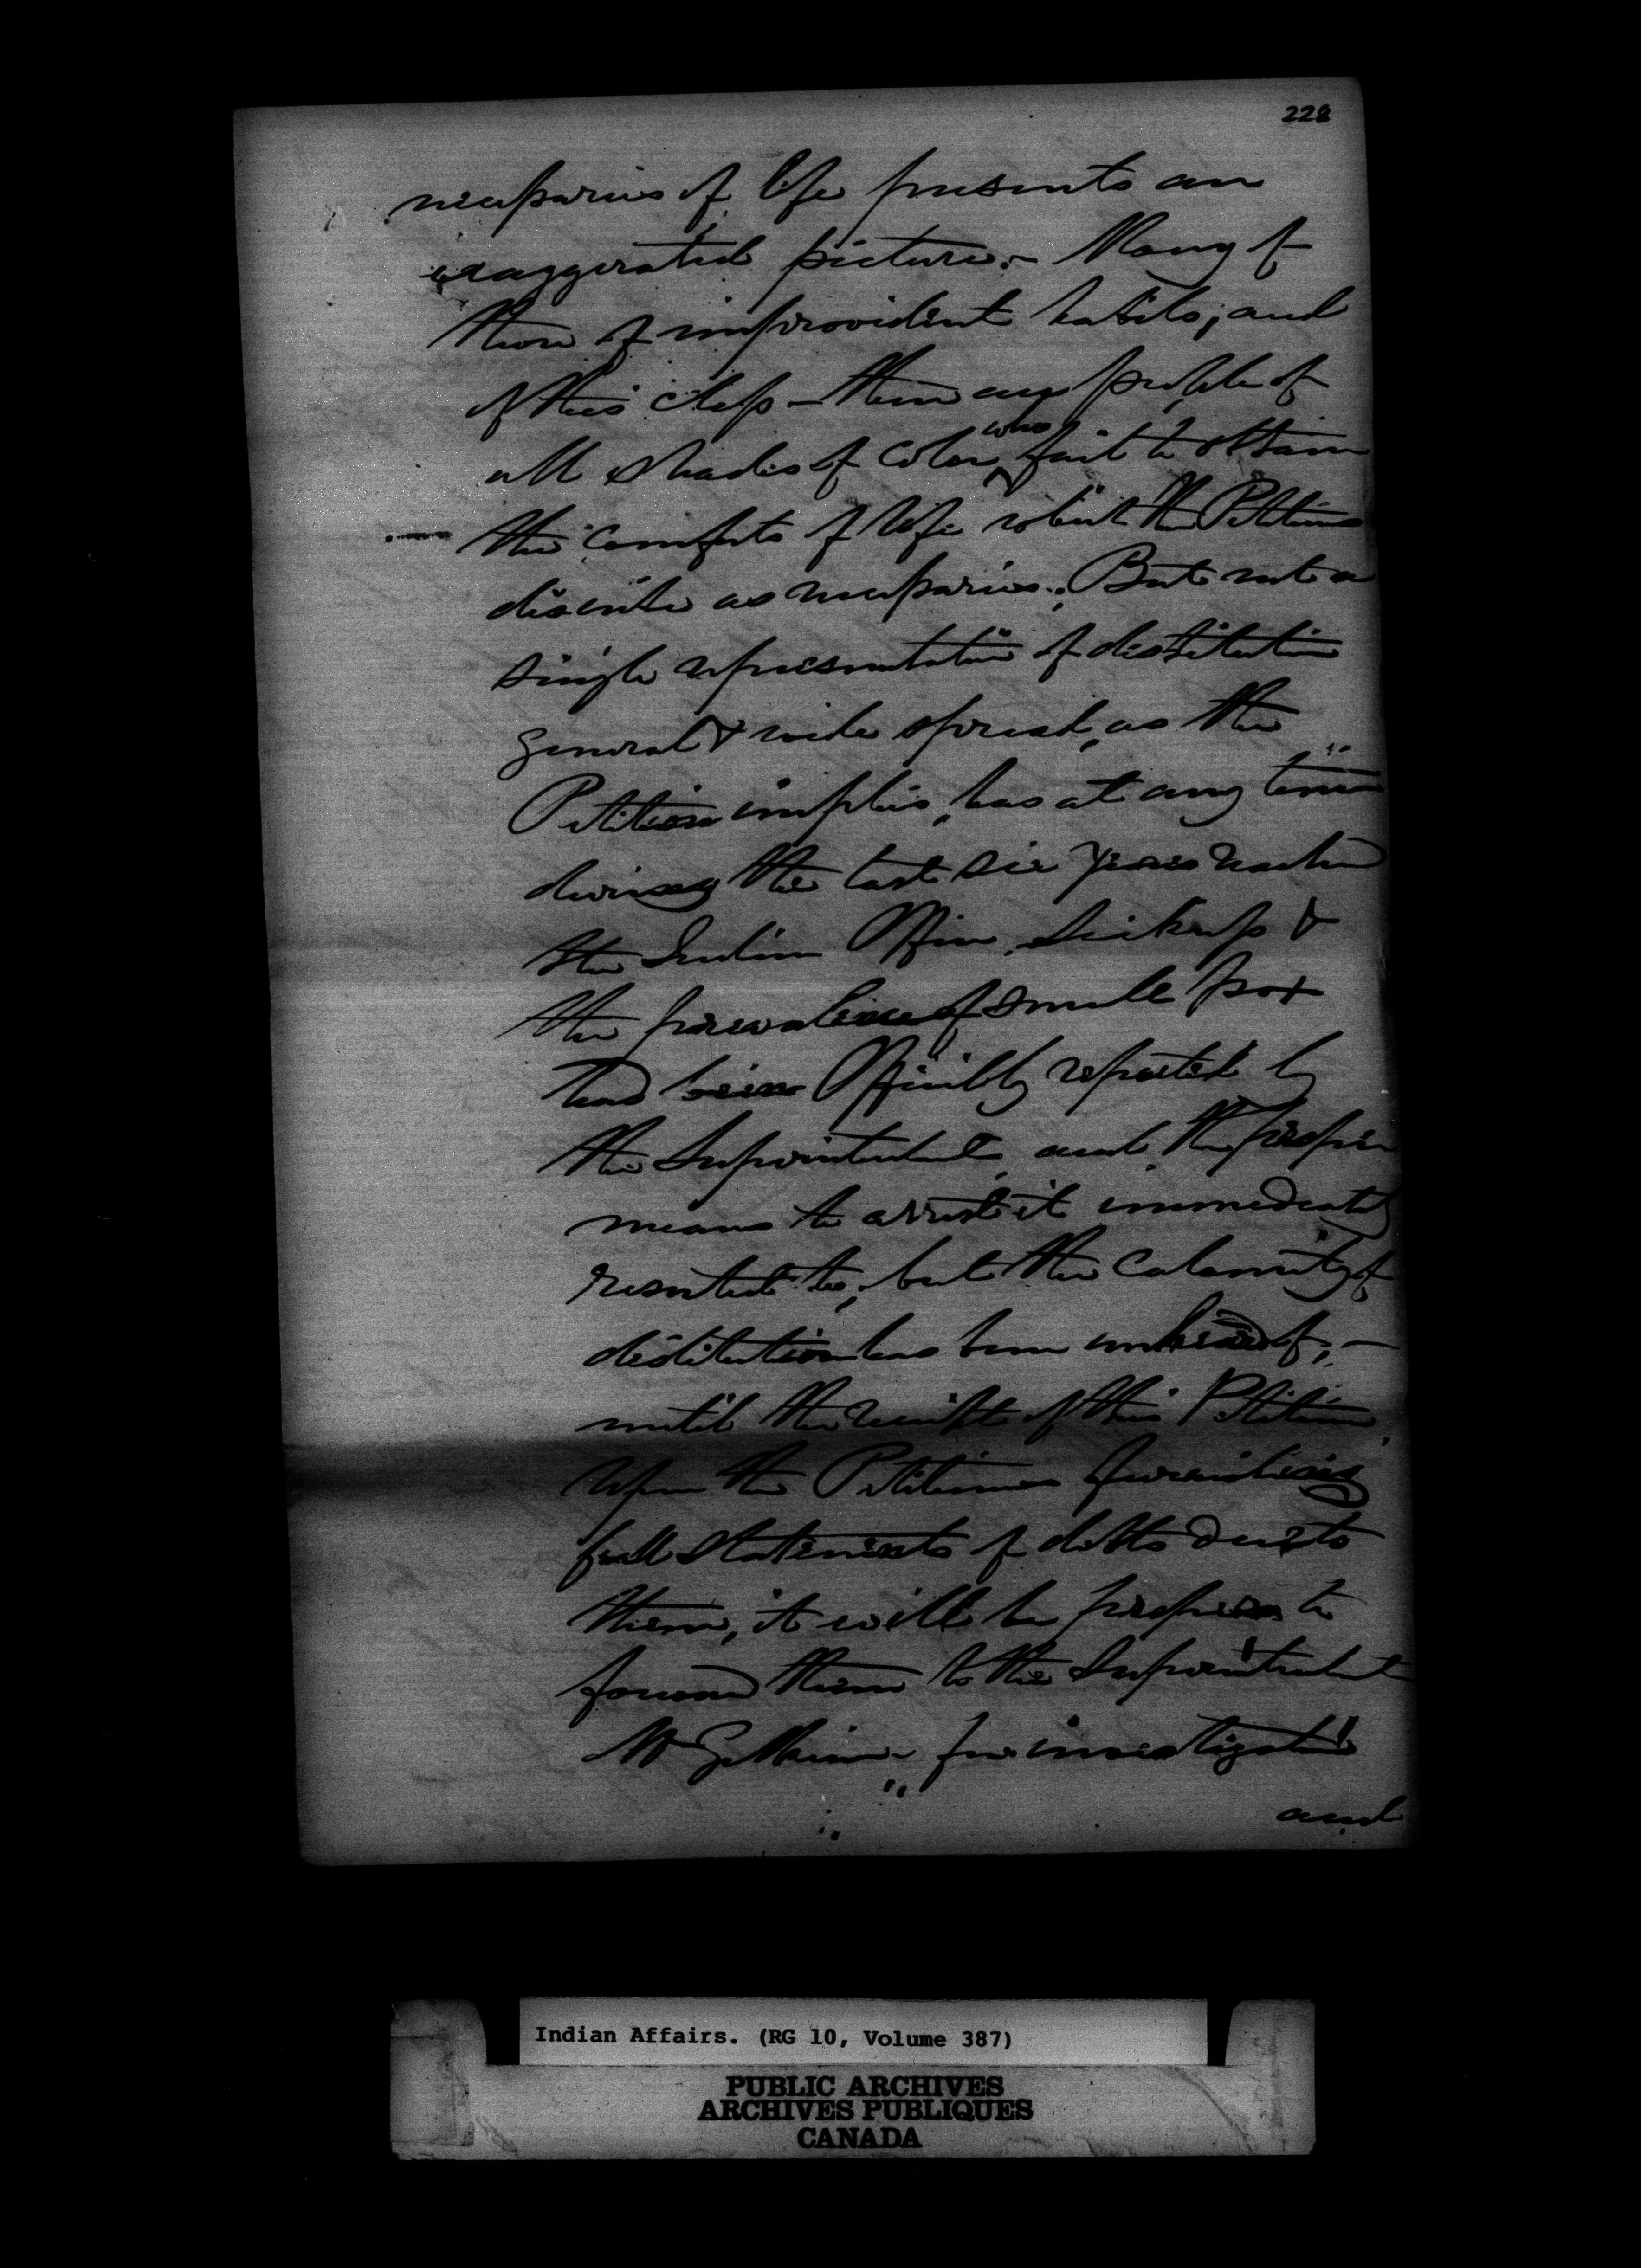 228
necessaries of life presents an
exaggerated picture.- Many of
them of improvident habits, and
of this class - there are people of
all shades of color who fail to obtain
the comforts of life which the Petitions
describe as necessaries. But not a
single representation of destitution
general & wide spread, as the
Petition implies, has at any time
during the last six years reached
the Indian Office. Sickness &
the prevalence of small pox
had been Officially reported by
the Superintendent, and the proper
means to arrest it immediately
resorted to, but the calamity of
destitution has been unheard of, -
until the receipt of this Petition.
Upon the Petitioners furnishing
full statements of debts due to
them, it will be proper to
forward them to the Superintendent
Mr Gilkison - for investigation
and
Indian Affairs. (RG 10, Volume 387)
PUBLIC ARCHIVES
ARCHIVES PUBLIQUES
CANADA